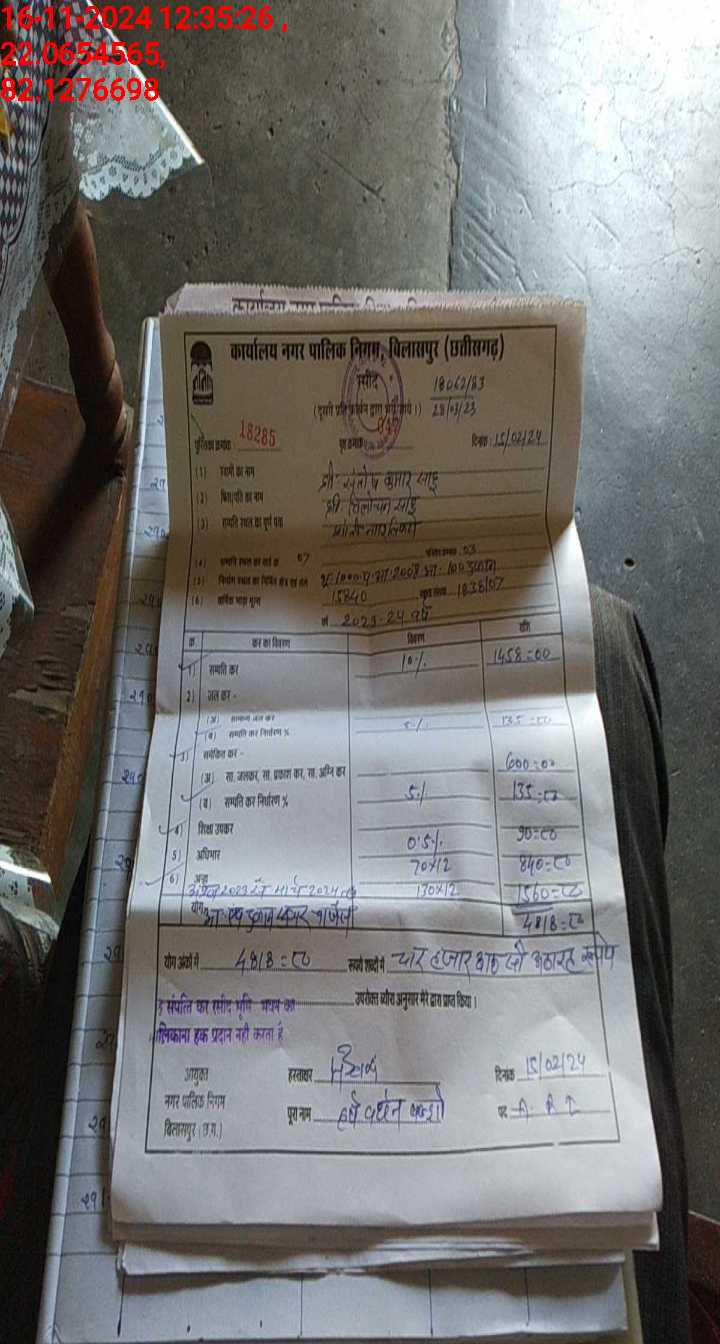 16-11-2024 12:35:26 ,
22.0654565,
82.1276698
कार्यालय नगर पालिक निगम, बिलासपुर (छत्तीसगढ़)
रसीद 18062/83
(दूसरी प्रति कार्बन द्वारा भरी जाये।) 28/03/23
पुस्तिका क्रमांक 18285 पृष्ठ क्रमांक दिनांक 15/02/24
(1) स्वामी का नाम श्री संतोष कुमार साहू
(2) पिता/पति का नाम श्री त्रिलोचन साहू
(3) सम्पत्ति स्थल का पूर्ण पता
(4) सम्पत्ति स्थल का वार्ड क्र. 07 03
(5)
(6) वार्षिक भाड़ा मूल्य 15840 1836/07
वर्ष 2023-24 वर्ष
क्र. कर का विवरण विवरण राशि
1) सम्पत्ति कर 10% 1458=00
2) जल कर -
(अ) सामान्य जल कर
(ब) सम्पत्ति कर निर्धारण % 135=00
3) समेकित कर - 600=00
(अ) सा. जलकर, सा. प्रकाश कर, सा. अग्नि कर
(ब) सम्पत्ति कर निर्धारण % 5% 135=00
4) शिक्षा उपकर 0.5% 90=00
5) अधिभार 70x12 840=00
6) अन्य 130x12 1560=00
अप्रैल 2023 से मार्च 2024 तक
योग 4818=00
योग अंकों में 4818=00 रूपये शब्दों में चार हजार आठ सौ अठारह रूपये
उपरोक्त ब्यौरा अनुसार मेरे द्वारा प्राप्त किया।
संपत्ति कर रसीद भूमि भवन का
मालिकाना हक प्रदान नहीं करता है
आयुक्त हस्ताक्षर दिनांक 15/02/24
नगर पालिक निगम पूरा नाम पद
बिलासपुर (छ.ग.)